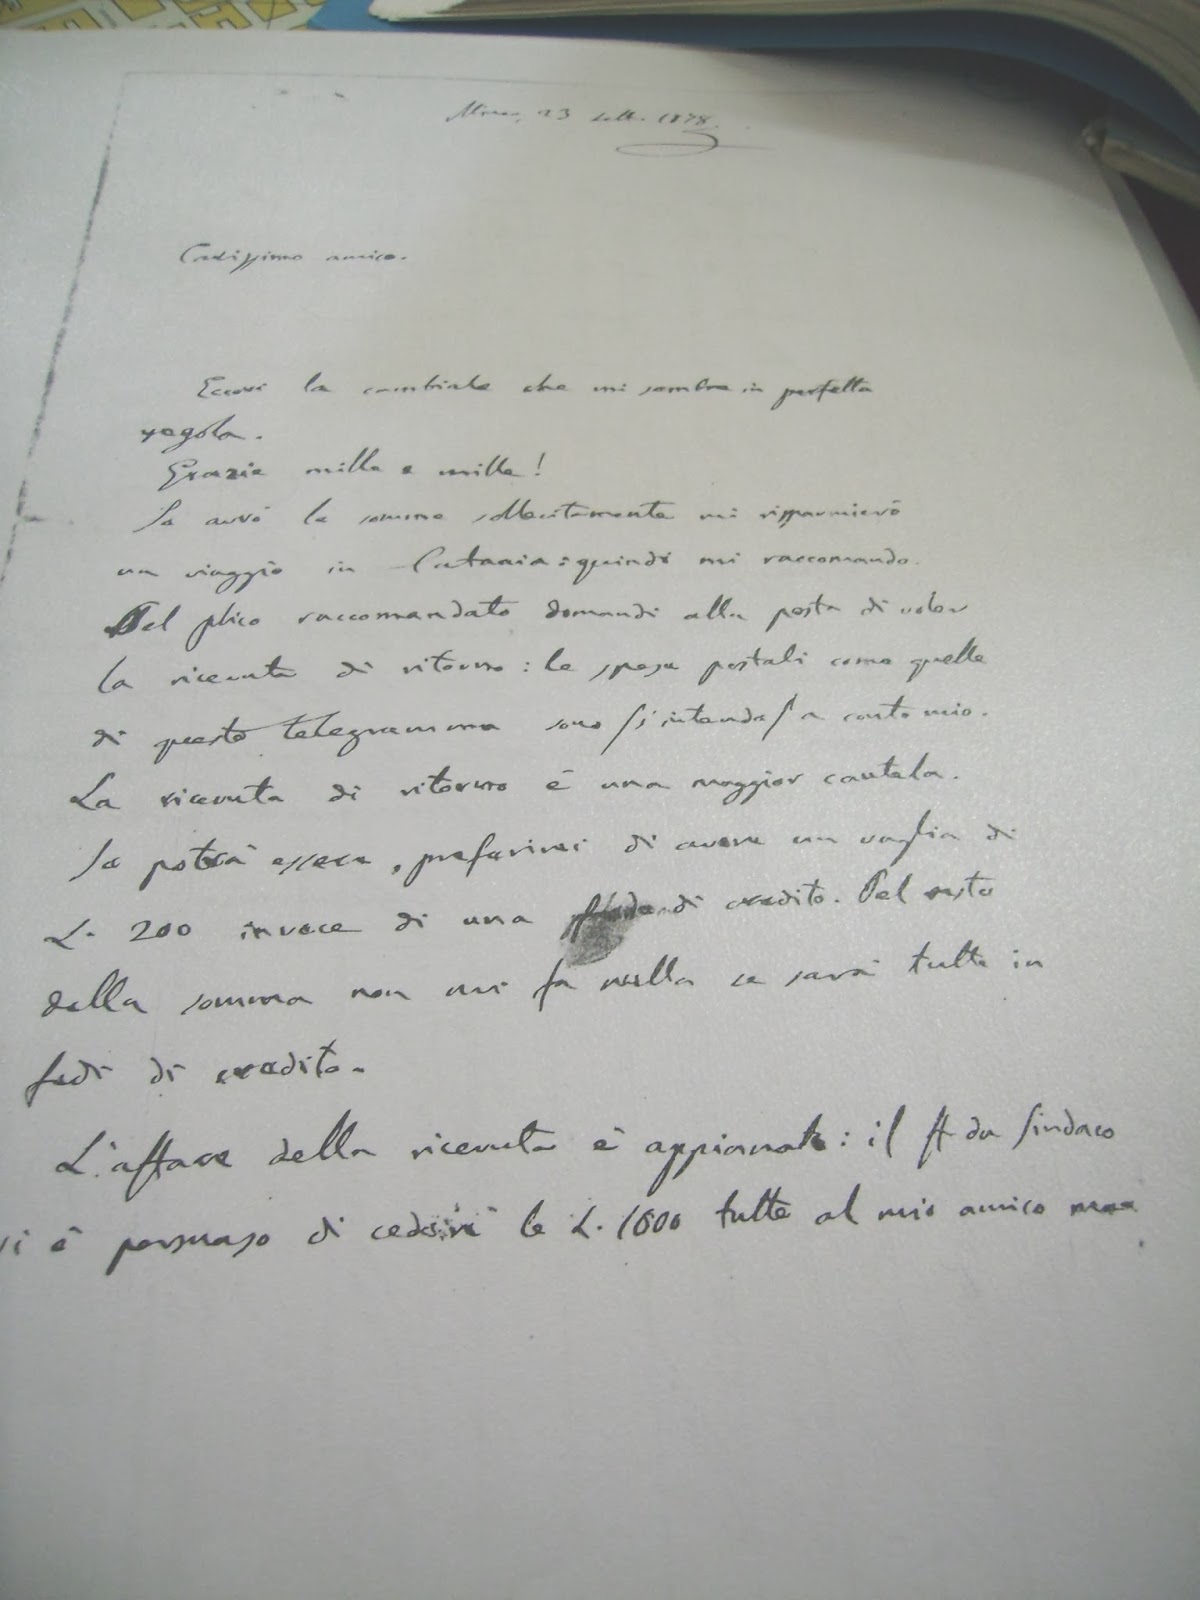 Mineo, 23 sett. 1878.
Carissimo amico.
Eccovi la cambiale che mi sembra in perfetta
regola.
Grazie mille e mille!
Se avrò la somma sollecitamente mi risparmierò
un viaggio in Catania: quindi mi raccomando.
Pel plico raccomandato domandi alla posta di voler
la ricevuta di ritorno: le spese postali come quelle
di questo telegramma sono /s'intende/ a conto mio.
La ricevuta di ritorno è una maggior cautela.
Se potrà essere, preferirei di avere un vaglia di
L. 200 invece di una di credito. Pel resto
della somma non mi fa nulla se sarà tutta in
fedi di credito.
L'affare della ricevuta è appianato: il ff. da Sindaco
si è persuaso di cedere le L. 1000 tutte al mio amico